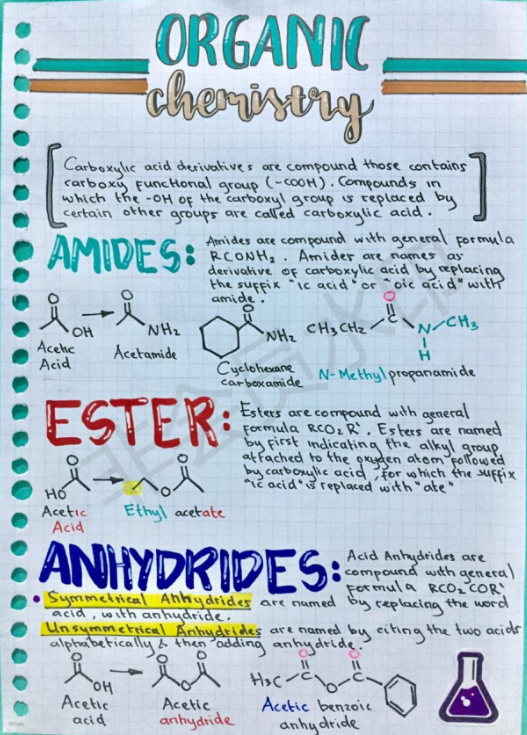 ORGANIC
chemistry
Carboxylic acid derivatives are compound those contains
carboxy functional group (-COOH). Compounds in
which the -OH of the carboxyl group is replaced by
certain other groups are called carboxylic acid.
AMIDES:
Amides are compound with general formula
RCONH₂. Amider are names as
derivative of carboxylic acid by replacing
the suffix "ic acid" or "oic acid" with
amide.
O OH
Acetic
Acid
O NH₂
Acetamide
O NH₂
Cyclohexane
carboxamide
CH₃CH₂ C O N CH₃ H
N-Methylpropanamide
ESTER:
Esters are compound with general
formula RCO₂R'. Esters are named
by first indicating the alkyl group
attached to the oxygen atom followed
by carboxylic acid, for which the suffix
"ic acid" is replaced with "ate"
O HO
Acetic
Acid
O O
Ethyl acetate
ANHYDRIDES:
Acid Anhydrides are
compound with general
formula RCO₂COR'
• Symmetrical Anhydrides are named by replacing the word
acid, with anhydride.
Unsymmetrical Anhydrides are named by citing the two acids
alphabetically & then adding anhydride.
O OH
Acetic
acid
O O O
Acetic
anhydride
H₃C C O O C O
Acetic benzoic
anhydride
非会员水印